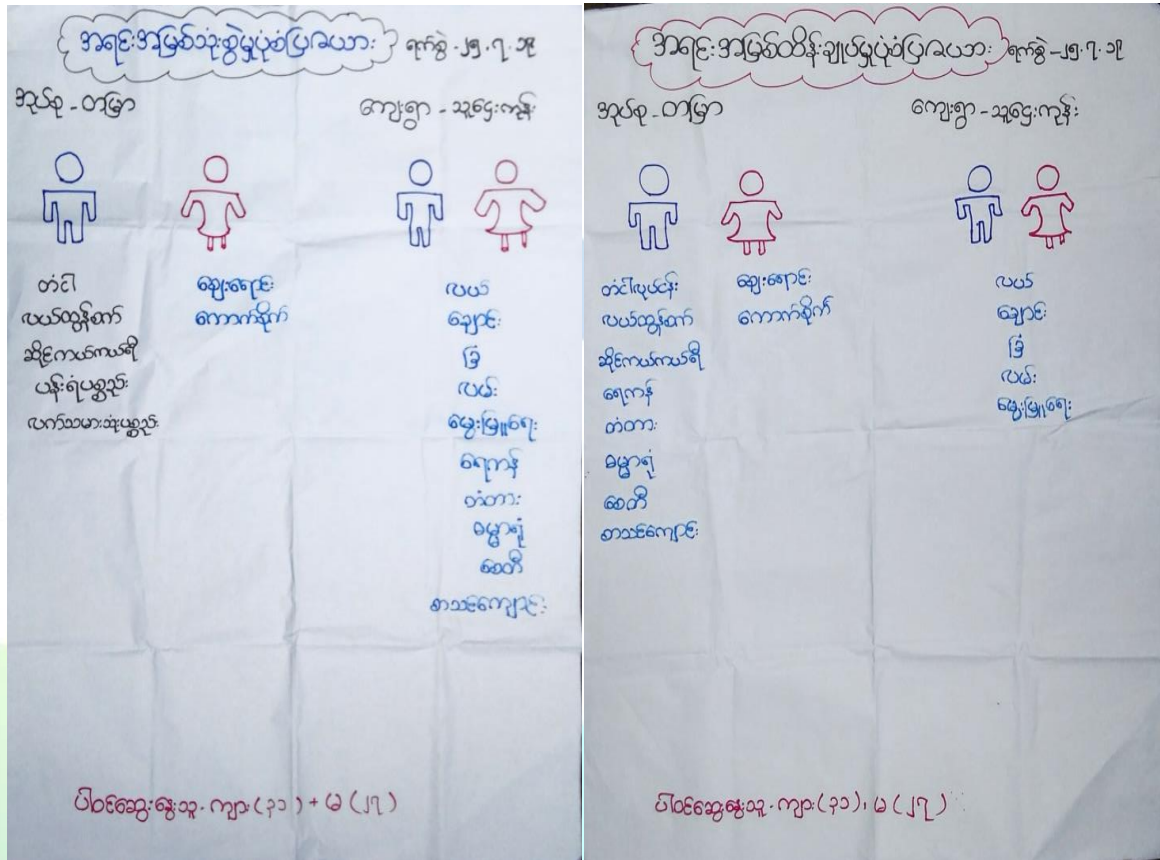 အရင်းအမြစ်သုံးစွဲမှုပုံစံပြဇယား ရက်စွဲ - ၂၅.၇.၁၉
အုပ်စု - တမြာ ကျေးရွာ - သူဌေးကုန်း
တံငါ
လယ်ထွန်စက်
ဆိုင်ကယ်ကယ်ရီ
ပန်းရံပစ္စည်း
လက်သမားသုံးပစ္စည်း
ဈေးရောင်း
ကောက်စိုက်
လယ်
ချောင်း
ခြံ
လမ်း
မွေးမြူရေး
ရေကန်
တံတား
ဓမ္မာရုံ
စေတီ
စာသင်ကျောင်း
ပါဝင်ဆွေးနွေးသူ - ကျား (၃၁) + မ (၂၇)
အရင်းအမြစ်ထိန်းချုပ်မှုပုံစံပြဇယား ရက်စွဲ - ၂၅.၇.၁၉
အုပ်စု - တမြာ ကျေးရွာ - သူဌေးကုန်း
တံငါလုပ်ငန်း
လယ်ထွန်စက်
ဆိုင်ကယ်ကယ်ရီ
ရေကန်
တံတား
ဓမ္မာရုံ
စေတီ
စာသင်ကျောင်း
ဈေးရောင်း
ကောက်စိုက်
လယ်
ချောင်း
ခြံ
လမ်း
မွေးမြူရေး
ပါဝင်ဆွေးနွေးသူ - ကျား (၃၁) ၊ မ (၂၇)